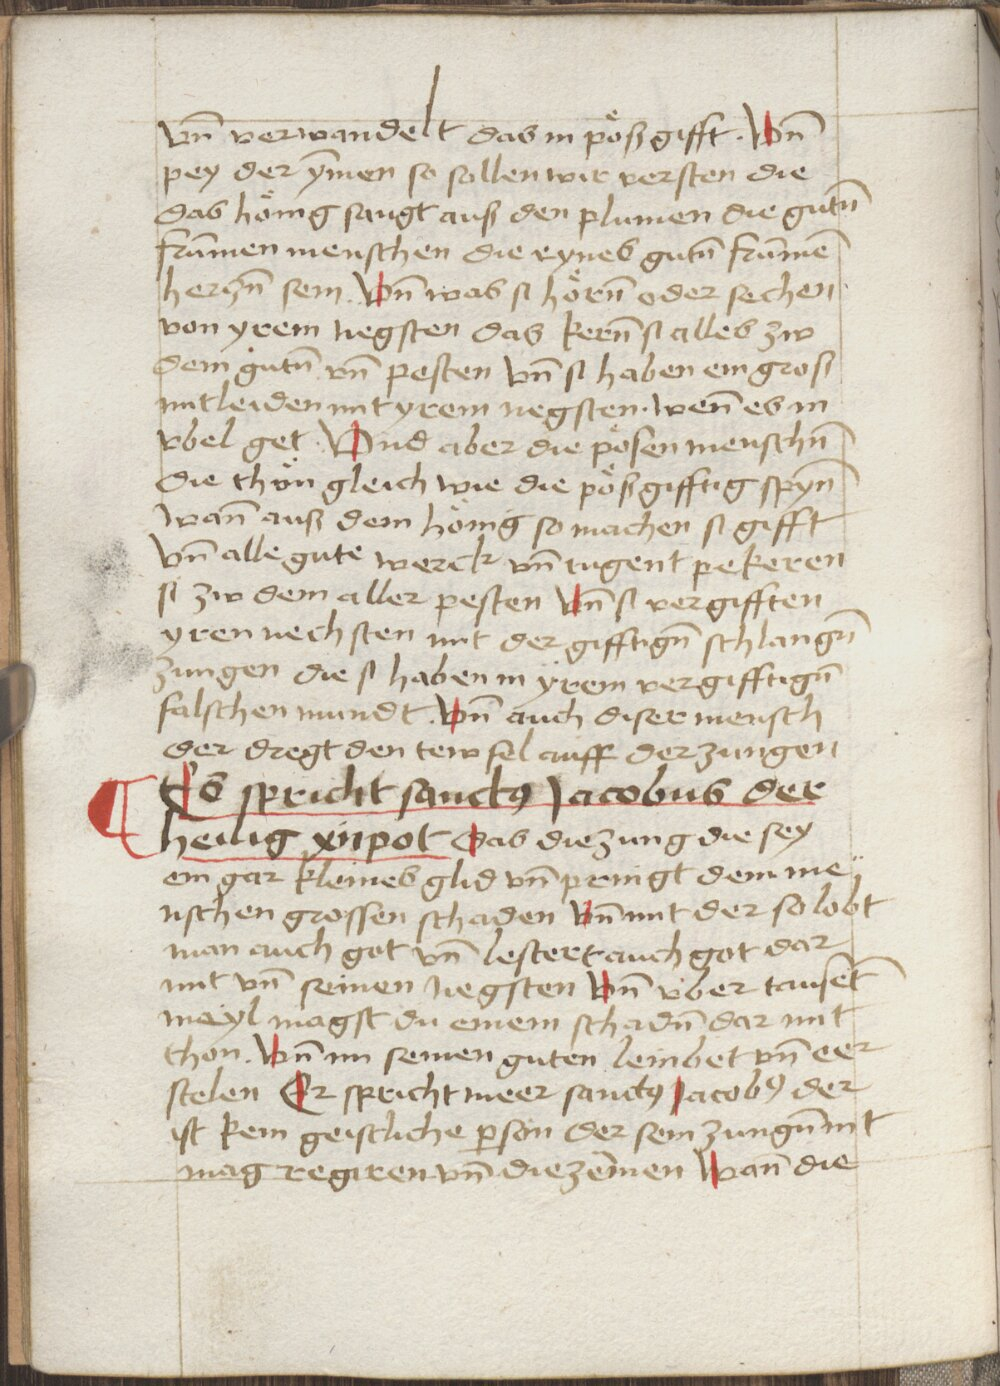 vn̄ verwandelt das in pöß gifft · Vn̄
pey der ȳmen so sollen wir versten die
das hönig saugt auß den plumen die gutn̄
frūmen menschen die eynes gutn̄ frūmē
herczn̄ sein · Vn̄ was si hörn̄ oder sechen
von yrem negsten das kern̄ si alles zw
dem gutn̄ vn̄ pesten Vn̄ si haben ein gross
mitleiden mit yrem negsten · wen̄ es in
vbel get · Vnd aber die pösen menschn̄
die thün gleich wie die pöß gifftig spyn̄
wan̄ auß dem hönig so machen si gifft
Vn̄ alle gute werck vn̄ tugent pekeren
si zw dem aller pesten Vn̄ si vergifften
yren nechsten mit der gifftign̄ schlangn̄
zungen die si haben in yrem vergifftign̄
falschen mundt · Vn̄ auch diser mensch
der dregt den tewfel auff der zungen
Es spricht sanctꝰ Jacobus der
heilig xiipot Das die zung die sey
ein gar kleines glid vn̄ pringt dem me
nschen grossen schaden Vn̄ mit der so lobt
man auch got vn̄ lestert auch got dar
mit vn̄ seinen negsten Vn̄ vber tausēt
mayl magst du einem schadn̄ dar mit
thon · Vn̄ im seinen guten leinbet vn̄ eer
stelen Er spricht meer sanctꝰ Jacobꝰ der
ist kein geistliche person der sein zungn̄ mit
mag regiren vn̄ die zēmen Wan̄ die